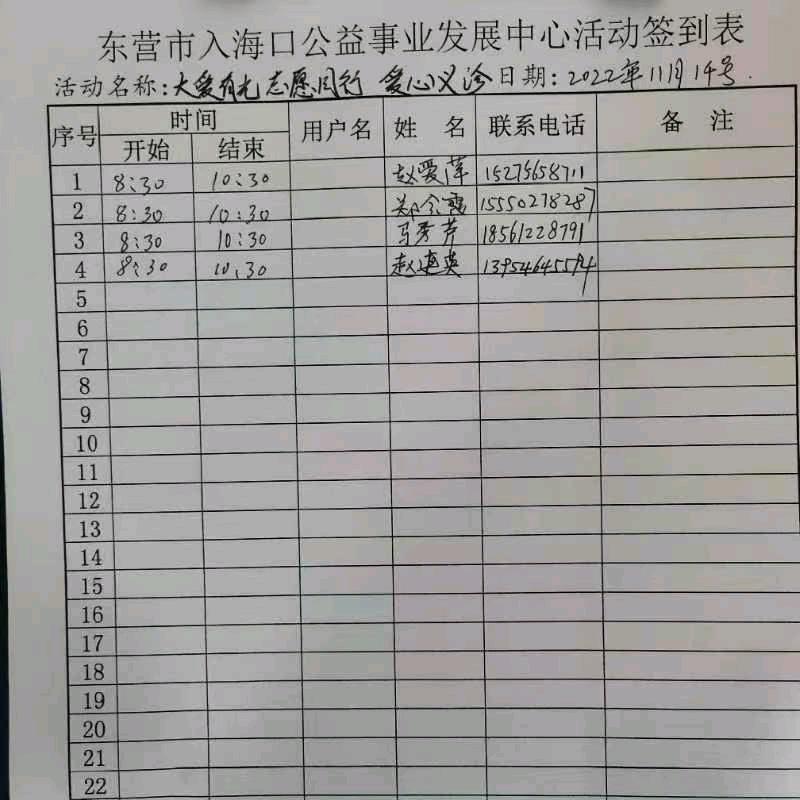 东营市入海口公益事业发展中心活动签到表
活动名称:大爱有光志愿同行 爱心义诊 日期:2022年11月14号.
序号 时间 用户名 姓 名 联系电话 备 注
开始 结束
1 8:30 10:30 赵爱萍 15275658711
2 8:30 10:30 郑令霞 15550278287
3 8:30 10:30 马秀芹 18561228791
4 8:30 10:30 赵建英 13954645594
5
6
7
8
9
10
11
12
13
14
15
16
17
18
19
20
21
22